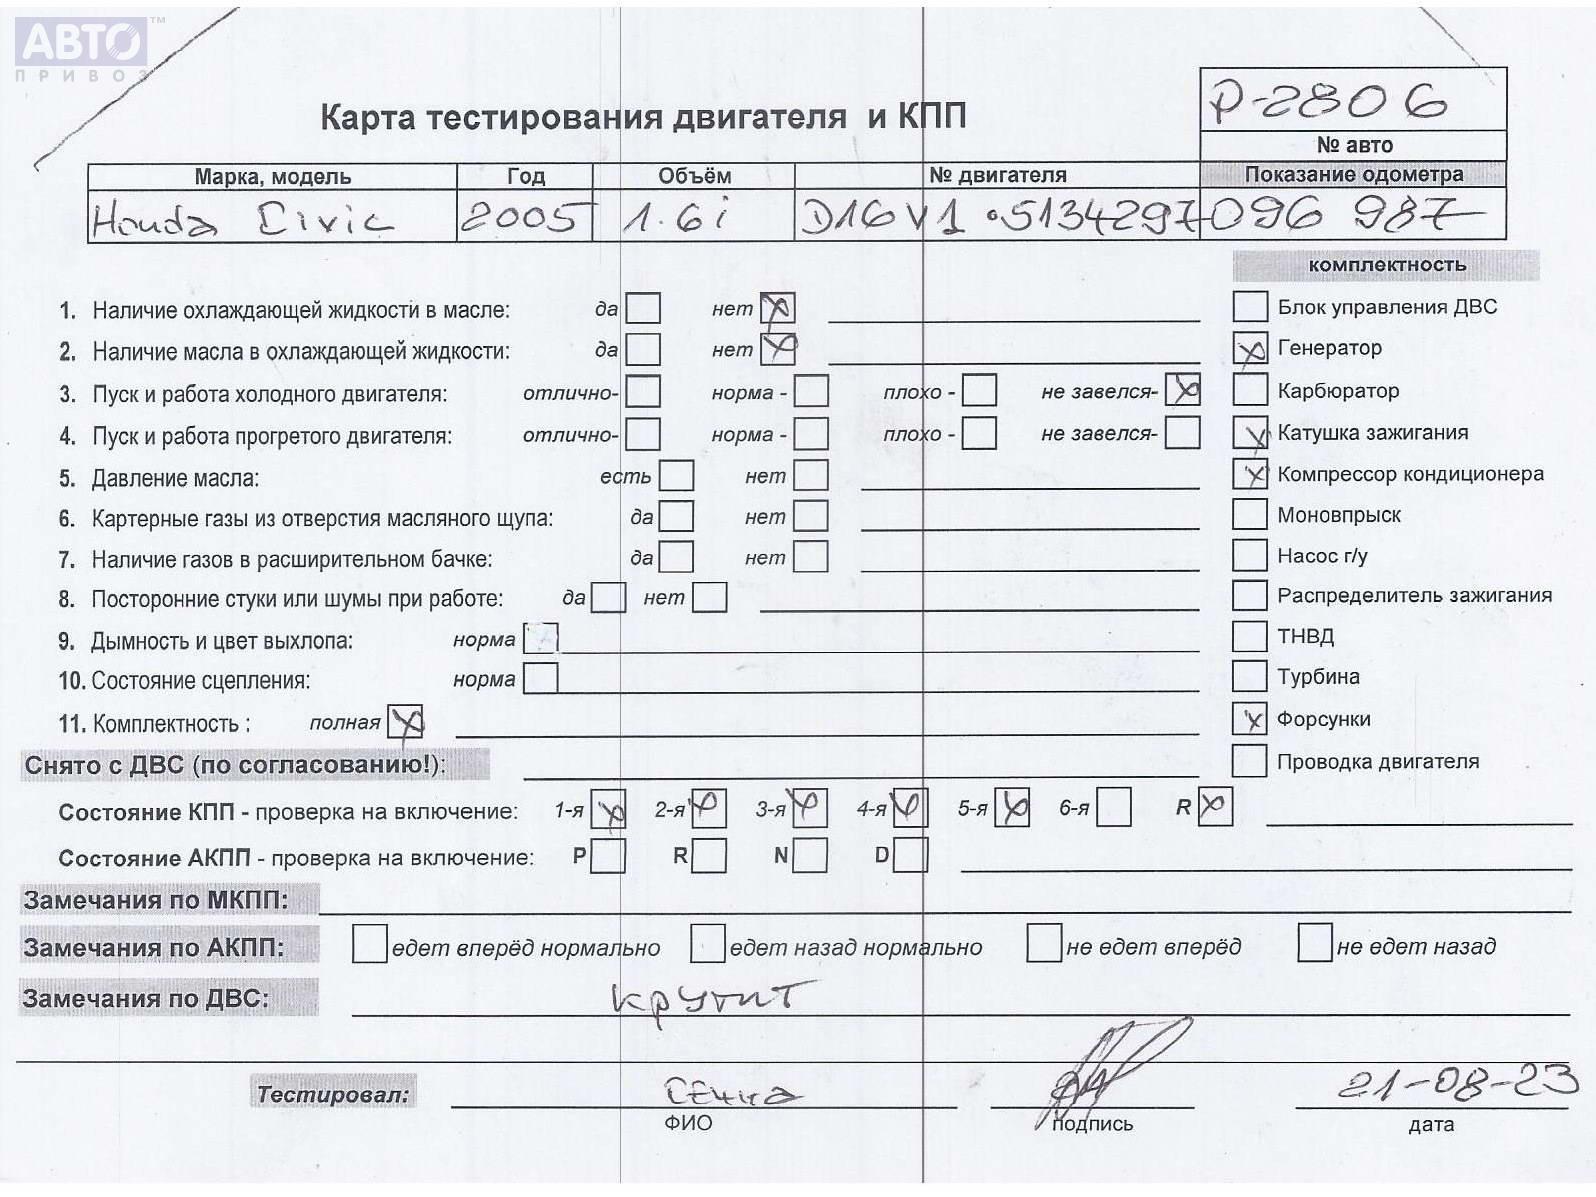 АВТО™
ПРИВОЗ
Р-2806
Карта тестирования двигателя и КПП
№ авто
Марка, модель Год Объём № двигателя Показание одометра
Honda Civic 2005 1.6i D16V1 •5134297 096 987
комплектность
1. Наличие охлаждающей жидкости в масле: да нет Блок управления ДВС
2. Наличие масла в охлаждающей жидкости: да нет Генератор
3. Пуск и работа холодного двигателя: отлично- норма - плохо - не завелся- Карбюратор
4. Пуск и работа прогретого двигателя: отлично- норма - плохо - не завелся- Катушка зажигания
5. Давление масла: есть нет Компрессор кондиционера
6. Картерные газы из отверстия масляного щупа: да нет Моновпрыск
7. Наличие газов в расширительном бачке: да нет Насос г/у
8. Посторонние стуки или шумы при работе: да нет Распределитель зажигания
9. Дымность и цвет выхлопа: норма ТНВД
10. Состояние сцепления: норма Турбина
11. Комплектность : полная Форсунки
Снято с ДВС (по согласованию!): Проводка двигателя
Состояние КПП - проверка на включение: 1-я 2-я 3-я 4-я 5-я 6-я R
Состояние АКПП - проверка на включение: P R N D
Замечания по МКПП:
Замечания по АКПП: едет вперёд нормально едет назад нормально не едет вперёд не едет назад
Замечания по ДВС: крутит
Тестировал: 21-08-23
ФИО подпись дата